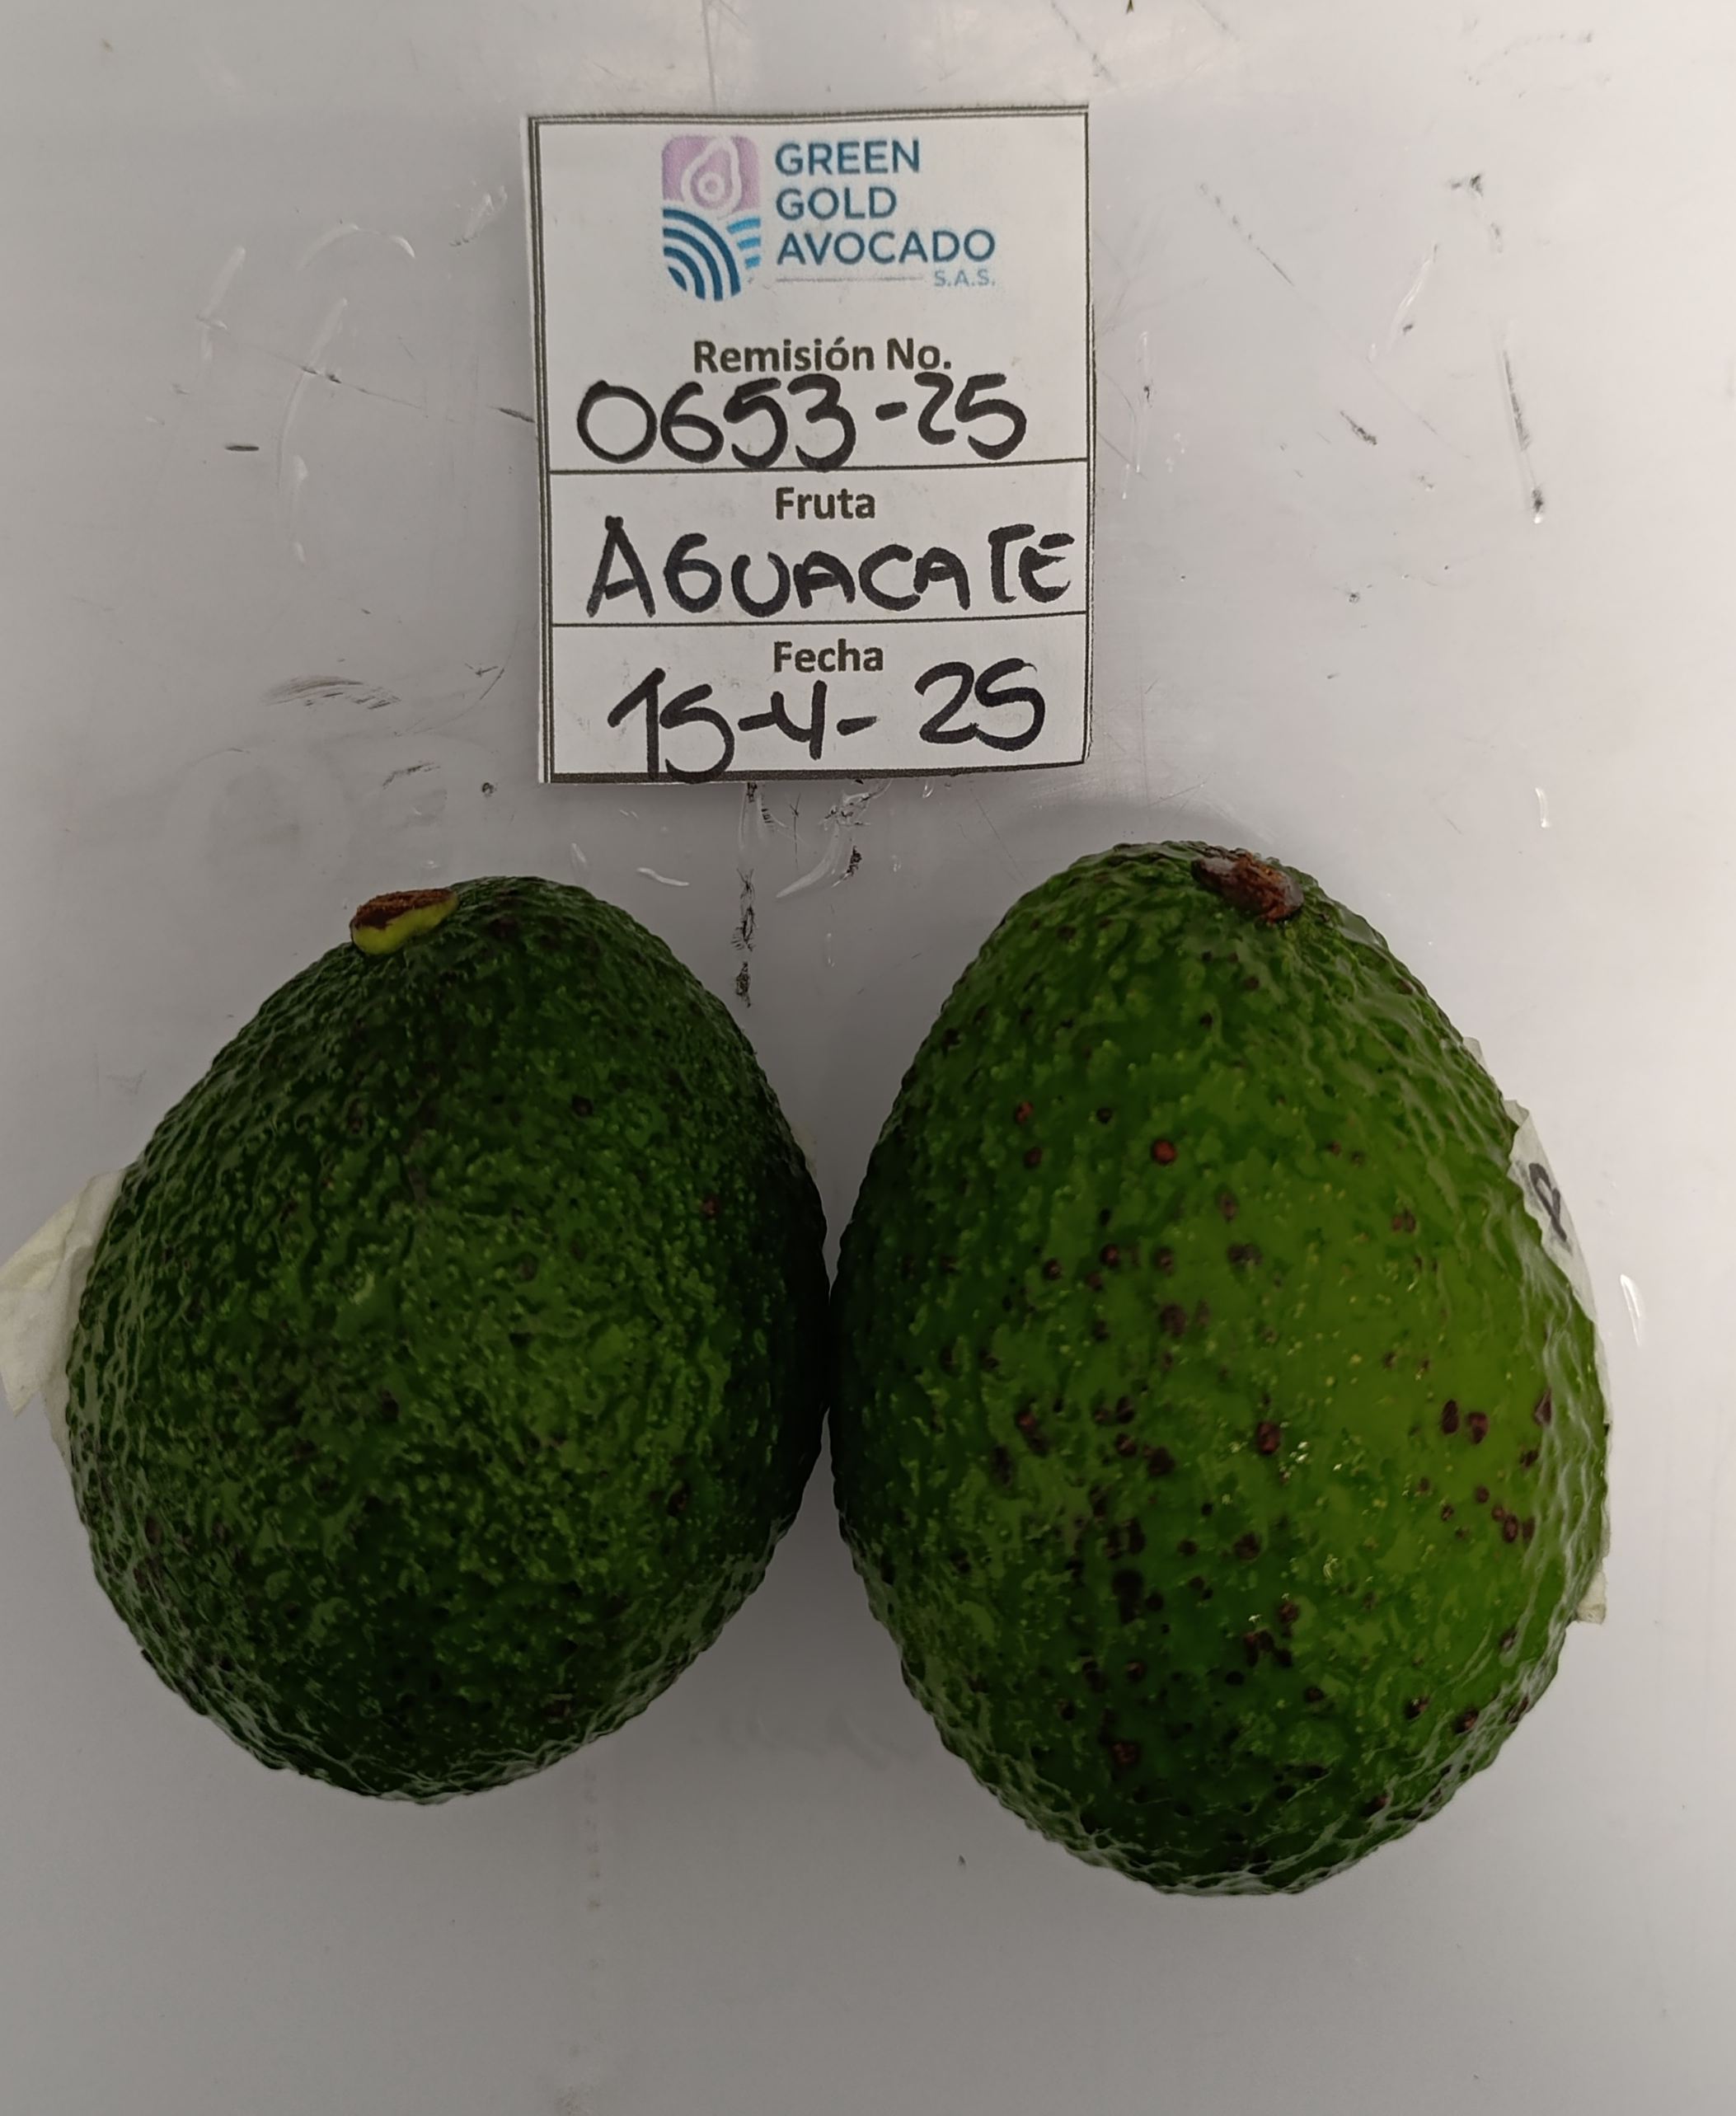 GREEN
GOLD
AVOCADO
S.A.S.
Remisión No.
0653-25
Fruta
AGUACATE
Fecha
15-4-25